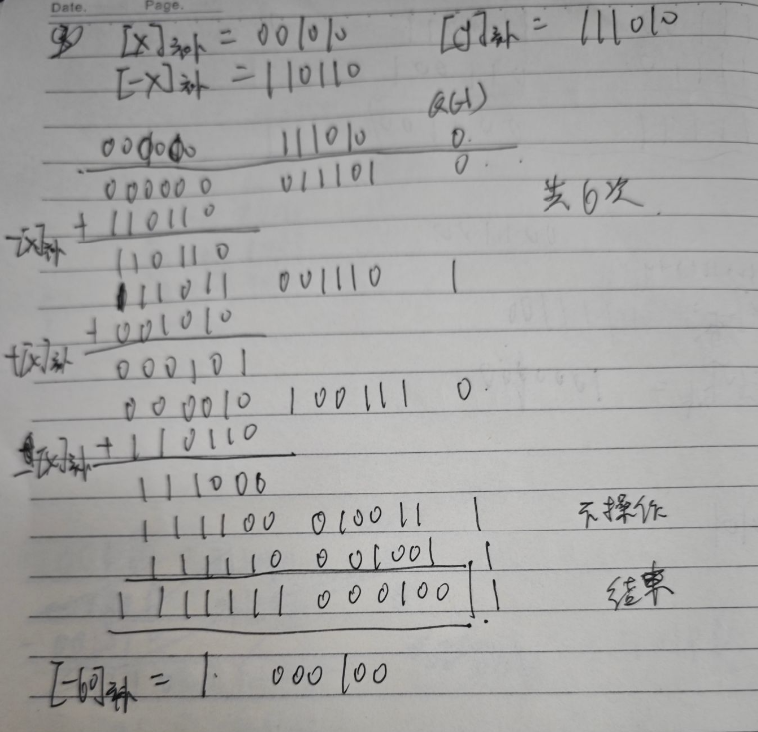 Date. Page.
[X]补 = 001010 [y]补 = 111010
[-X]补 = 110110
Q(-1)
000000 111010 0
000000 011101 0
共6次
-[x]补 + 110110
110110
111011 001110 1
+[x]补 + 001010
000101
000010 100111 0
-[x]补 + 110110
111000
111100 010011 1 不操作
111110 001001 1
1111111 000100 1 结束
[-60]补 = 1. 000100